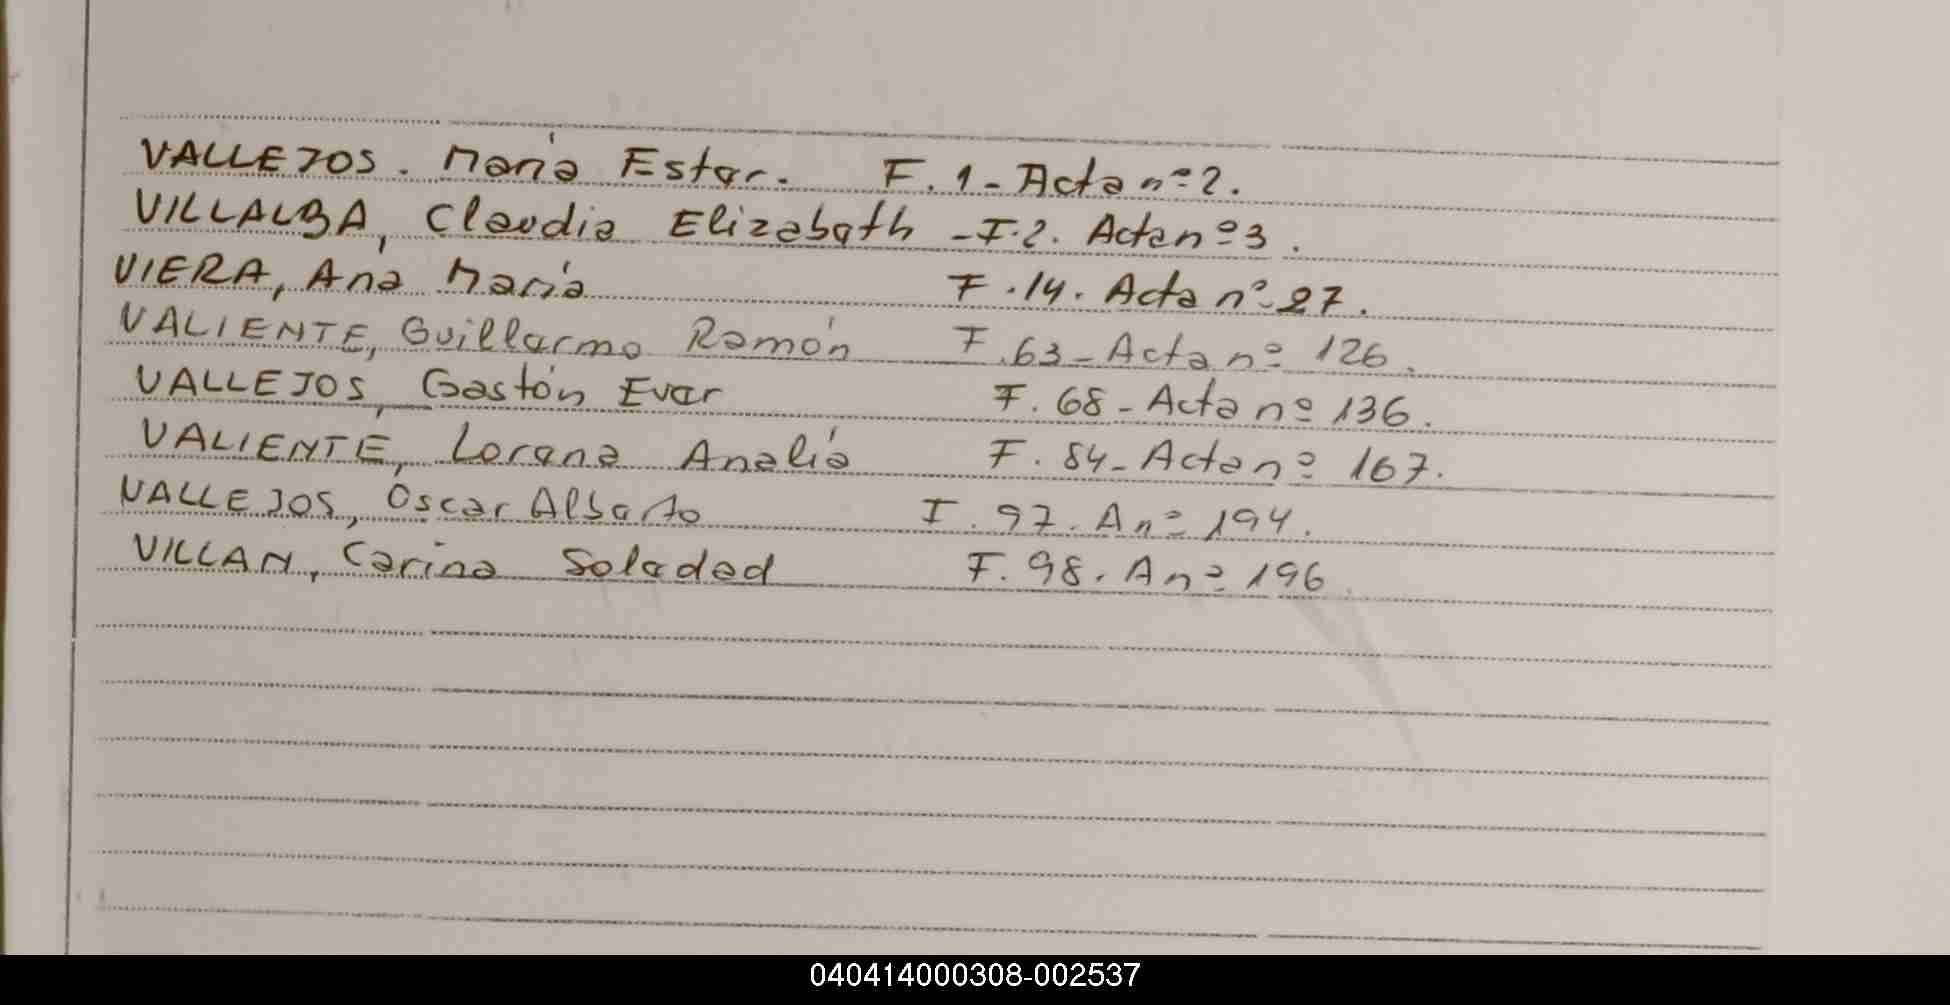 VALLEJOS. María Ester. F. 1 - Acta nº 2.
VILLALBA, Claudia Elizabeth - F. 2. Acta nº 3.
VIERA, Ana María F. 14. Acta nº 27.
VALIENTE, Guillermo Ramón F. 63 - Acta nº 126.
VALLEJOS, Gastón Ever F. 68 - Acta nº 136.
VALIENTE, Lorena Analía F. 84 - Acta nº 167.
VALLEJOS, Oscar Alberto F. 97. A nº 194.
VILLAN, Carina Soledad F. 98. A nº 196
040414000308-002537